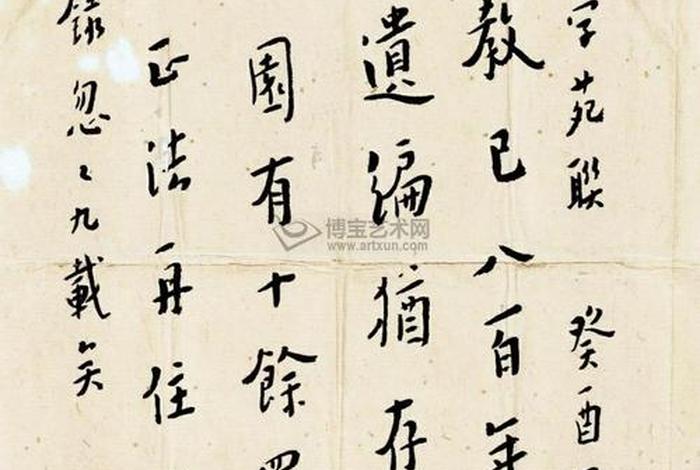 字苑聯 癸酉
教已八百年
遺編猶存
園有十餘
正法再住
錄忽〻九載矣
博宝艺术网
www.artxun.com